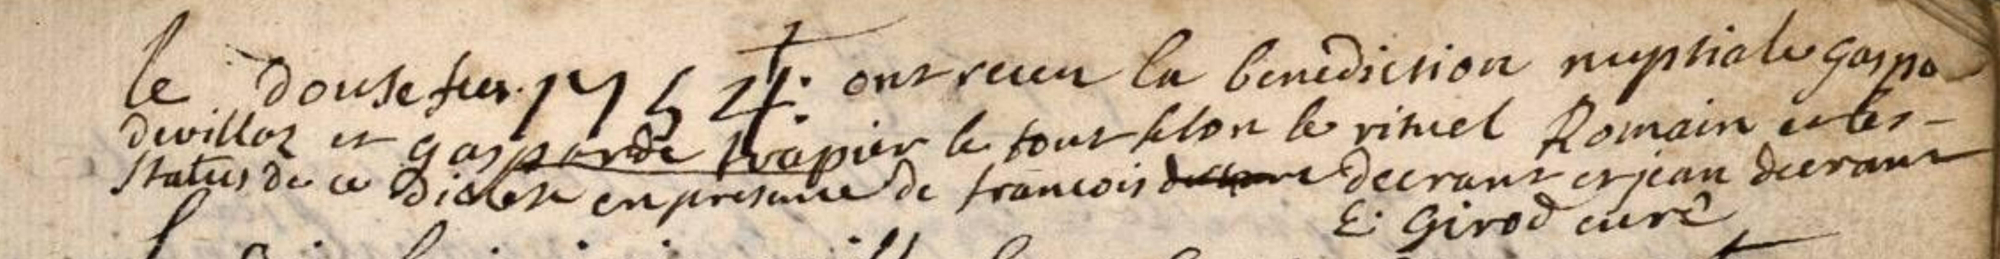 le douse feu. 1754. ont receu la benediction nuptiale gaspa
devilloz et gasparde trapier le tout selon le rituel Romain et les
statuts de ce diocese en presence de francois decrant et jean decrant
E. Girod curé